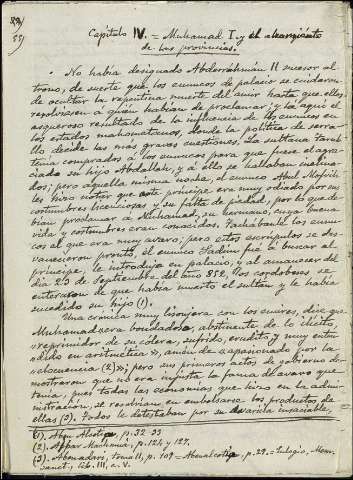 Capítulo IV. = Muhamad I. y el
de las provincias.
No habia designado Abderrahmán II sucesor al
trono, de suerte que los eunucos de palacio se cuidaron
de ocultar la repentina muerte del emir hasta que ellos
resolviesen a quien habian de proclamar; y he aqui el
asqueroso resultado de la influencia de los eunucos en
los estados mahometanos, donde la política de serra-
llo decide las más graves cuestiones. La sultana Tarub
tenía comprados á los eunucos para que fuese el agra-
ciado su hijo Abdallah, y á ello se hallaban inclina-
dos; pero aquella misma noche, el eunuco Abul Mofrih
les hizo notar que este príncipe era muy odiado por sus
costumbres licenciosas y su falta de piedad, por lo que de-
bían proclamar á Muhamad, su hermano, cuya buena
vida y costumbres eran conocidas. Tachábanle los eunu-
cos el que era muy avaro; pero estos escrúpulos se des-
vanecieron pronto, el eunuco Sadun fué á buscar al
príncipe, le introdujo en palacio, y al amanecer del
dia 23 de Septiembre del año 852, los cordobeses se
enteraron de que habia muerto el sultán y le habia
sucedido su hijo (1).
Una crónica muy lisonjera con los suyos, dice que
Muhamad «era bondadoso, abstinente de lo ilícito,
reprimidor de su cólera, sufrido, erudito y muy enten-
dido en aritmética», amén de «apasionado por la
elocuencia (2)»; pero sus primeros actos de gobierno de-
mostraron que no era injusta la fama de avaro que
tenia, pues todas las economías que hizo en la admi-
nistración, se resolvían en embolsarse los productos de
ellas (3). Todos le detestaban por su avaricia insaciable,
(1). p. 32-33
(2). Ajbar Machmuá, p. 124 y 127.
(3). Abenadari, tomo II, p. 109 = Abenalcotia, p. 29. = Eulogio, Mem.
Sanct., lib. III, c. V.